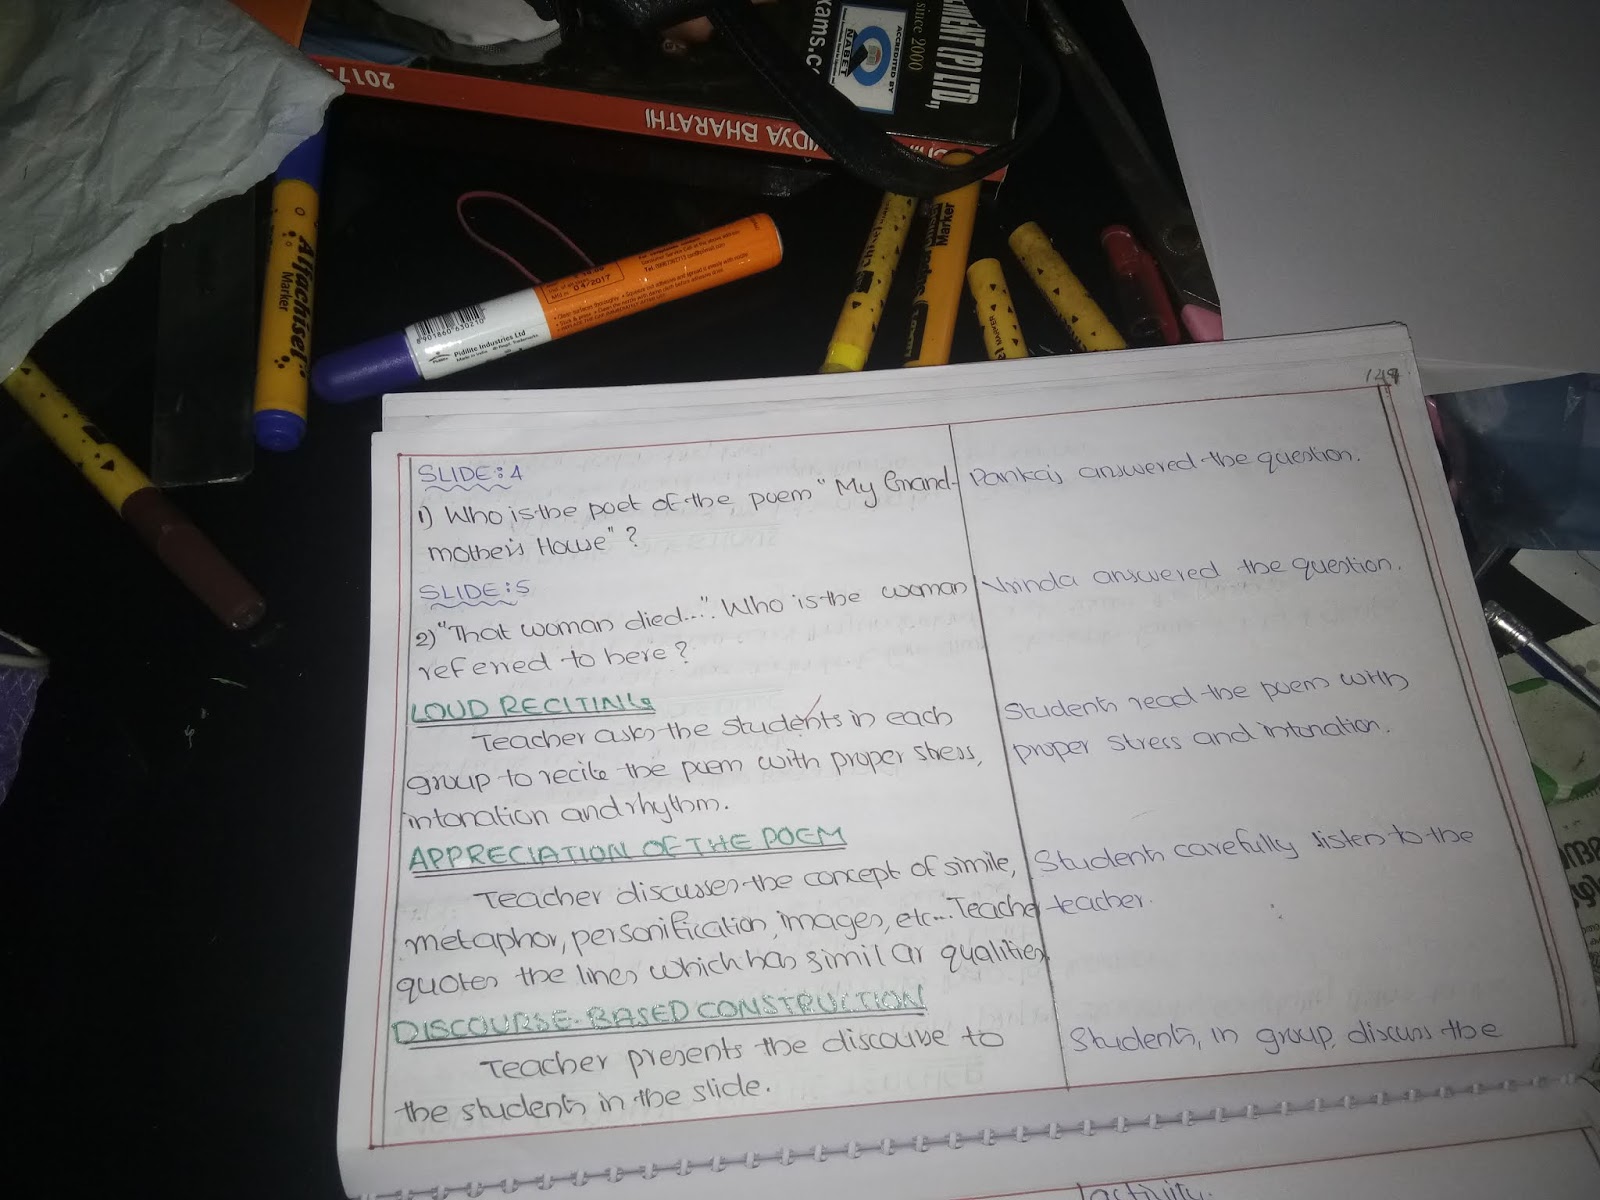 xams.co
ACCREDITED BY
NABET
since 2000
EMENT (P) LTD,
2017-
VIDYA BHARATHI
Alfachisel
Marker
Pidilite Industries Ltd
8901860630210
04/2017
Marker
149
SLIDE:4
1) Who is the poet of the poem "My Grand-
mother's House"?
SLIDE:5
2) "That woman died...". Who is the woman
referred to here?
LOUD RECITING
Teacher asks the students in each
group to recite the poem with proper stress,
intonation and rhythm.
APPRECIATION OF THE POEM
Teacher discusses the concept of simile,
metaphor, personification, images, etc... Teacher
quotes the lines which has similar qualities.
DISCOURSE-BASED CONSTRUCTION
Teacher presents the discourse to
the students in the slide.
Pankaj answered the question.
Vrinda answered the question.
Students read the poem with
proper stress and intonation.
Students carefully listen to the
teacher.
Students, in group, discuss the
activity.